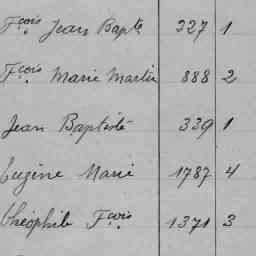 Fçois Jean Bapte 327 1
Fçois Marie Martin 888 2
Jean Baptiste 339 1
Eugène Marie 1787 4
Théophile Fçois 1371 3